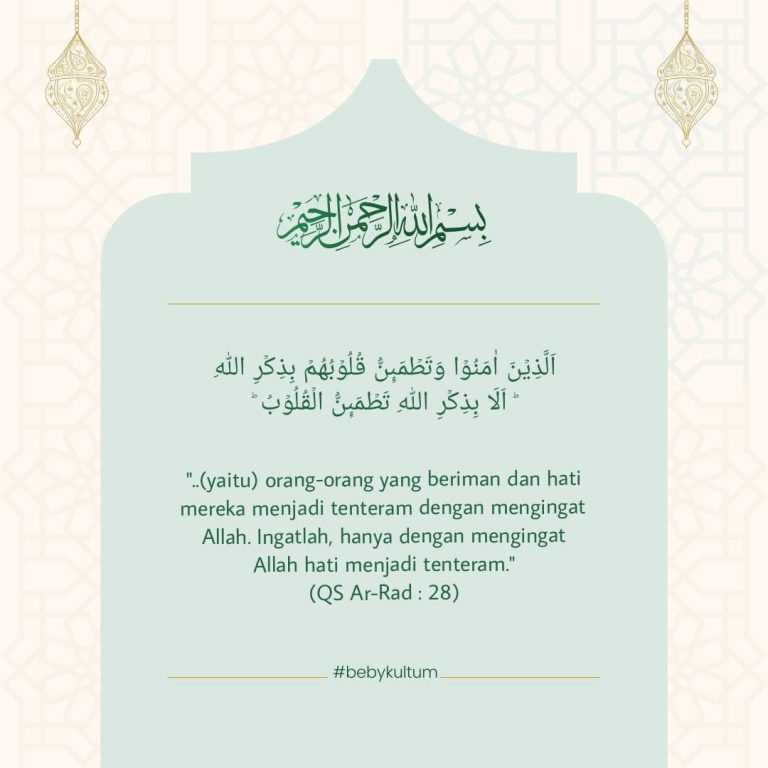 بِسْمِ اللهِ الرَّحْمَنِ الرَّحِيمِ
اَلَّذِيْنَ اٰمَنُوْا وَتَطْمَىِٕنُّ قُلُوْبُهُمْ بِذِكْرِ اللّٰهِ
ۗ اَلَا بِذِكْرِ اللّٰهِ تَطْمَىِٕنُّ الْقُلُوْبُ ۗ
"..(yaitu) orang-orang yang beriman dan hati
mereka menjadi tenteram dengan mengingat
Allah. Ingatlah, hanya dengan mengingat
Allah hati menjadi tenteram."
(QS Ar-Rad : 28)
#bebykultum